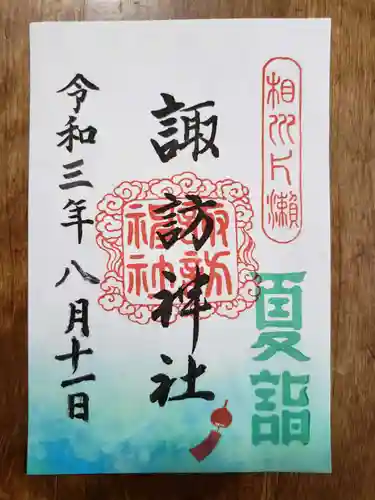 相州片瀬
夏詣
諏訪神社
諏訪神社
令和三年八月十一日